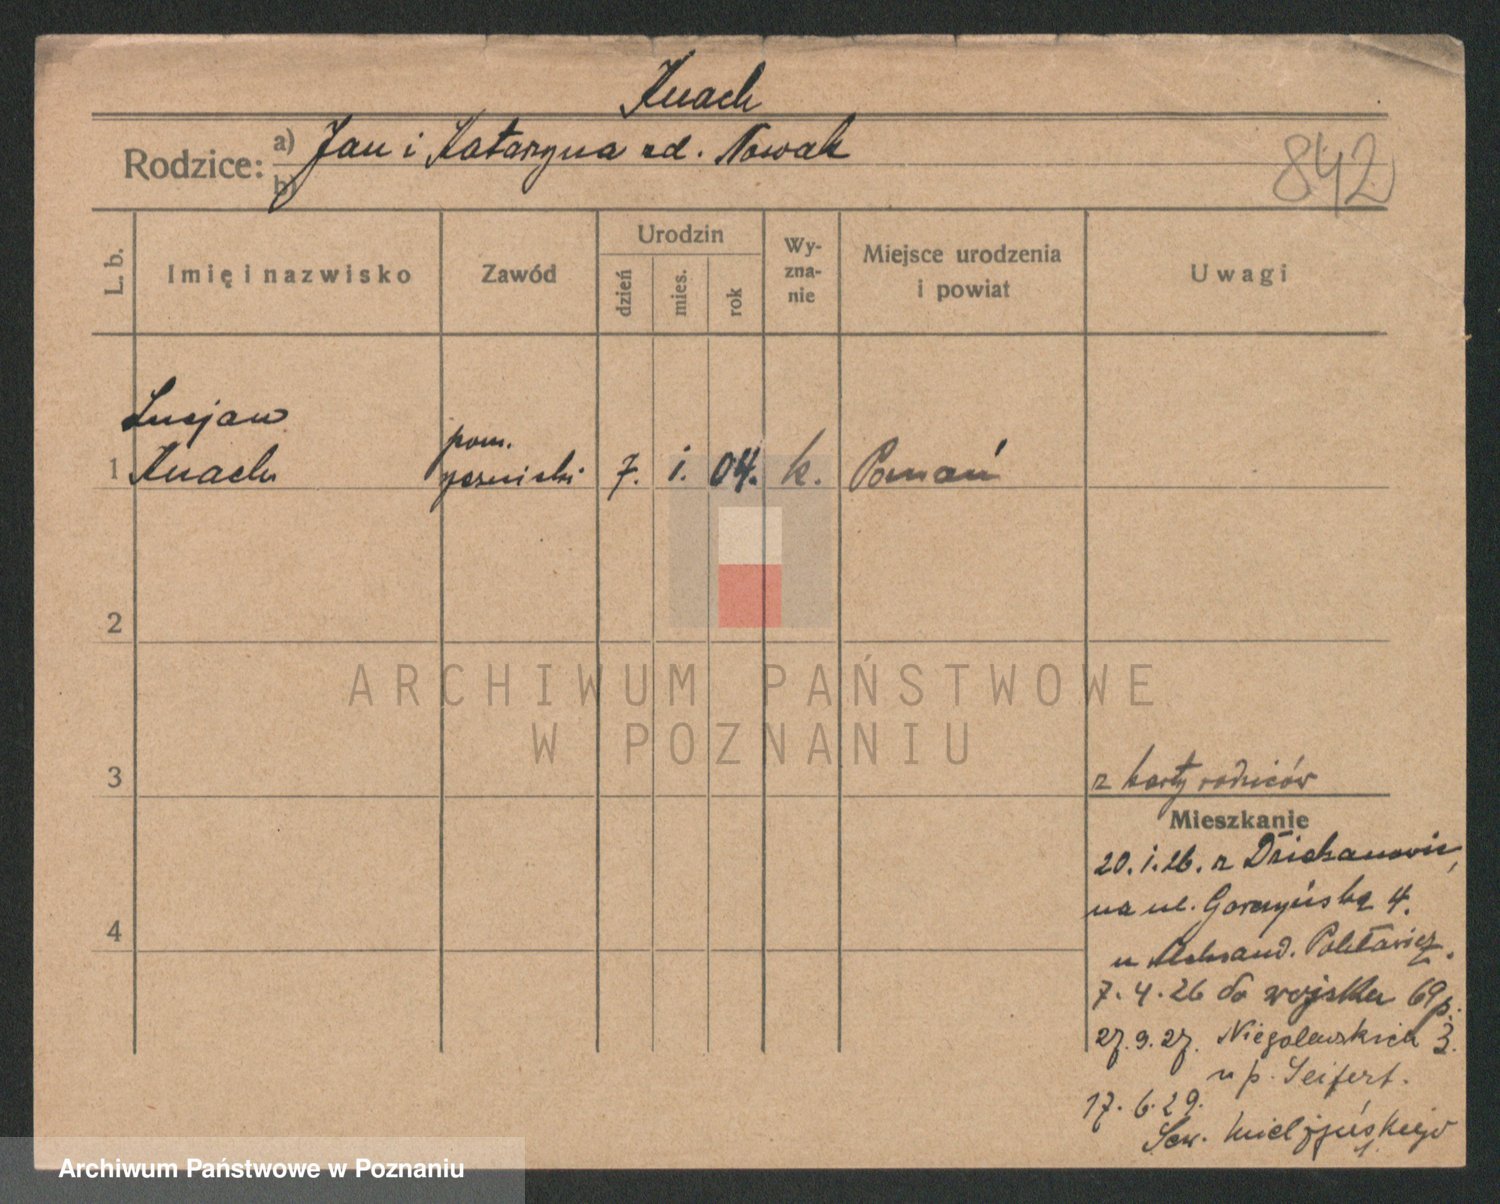 Knach
Rodzice: a) Jan i Katarzyna zd. Nowak
b)
842
L. b.
Imię i nazwisko
Zawód
Urodzin
dzień
mies.
rok
Wy-
zna-
nie
Miejsce urodzenia
i powiat
Uwagi
Lucjan
1 Knach
pom.
7. i. 04. k. Poznań
2
3
4
z karty rodziców
Mieszkanie
20.i.26. z
na ul. Gorczyńską 4.
u Aleksand.
7.4.26 do wojska 69 p.
27.9.27. Niegolewskich 3.
u p. Seifert.
17.6.29.
Sew. Mielżyńskiego
ARCHIWUM PAŃSTWOWE
W POZNANIU
Archiwum Państwowe w Poznaniu